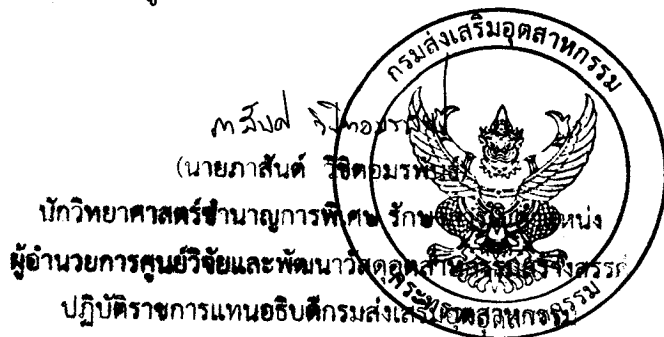 กรมส่งเสริมอุตสาหกรรม
(นายภาสันต์ วิชิตอมรพันธ์)
นักวิทยาศาสตร์ชำนาญการพิเศษ รักษาการในตำแหน่ง
ผู้อำนวยการศูนย์วิจัยและพัฒนาวัสดุอุตสาหกรรมสร้างสรรค์
ปฏิบัติราชการแทนอธิบดีกรมส่งเสริมอุตสาหกรรม
กระทรวงอุตสาหกรรม